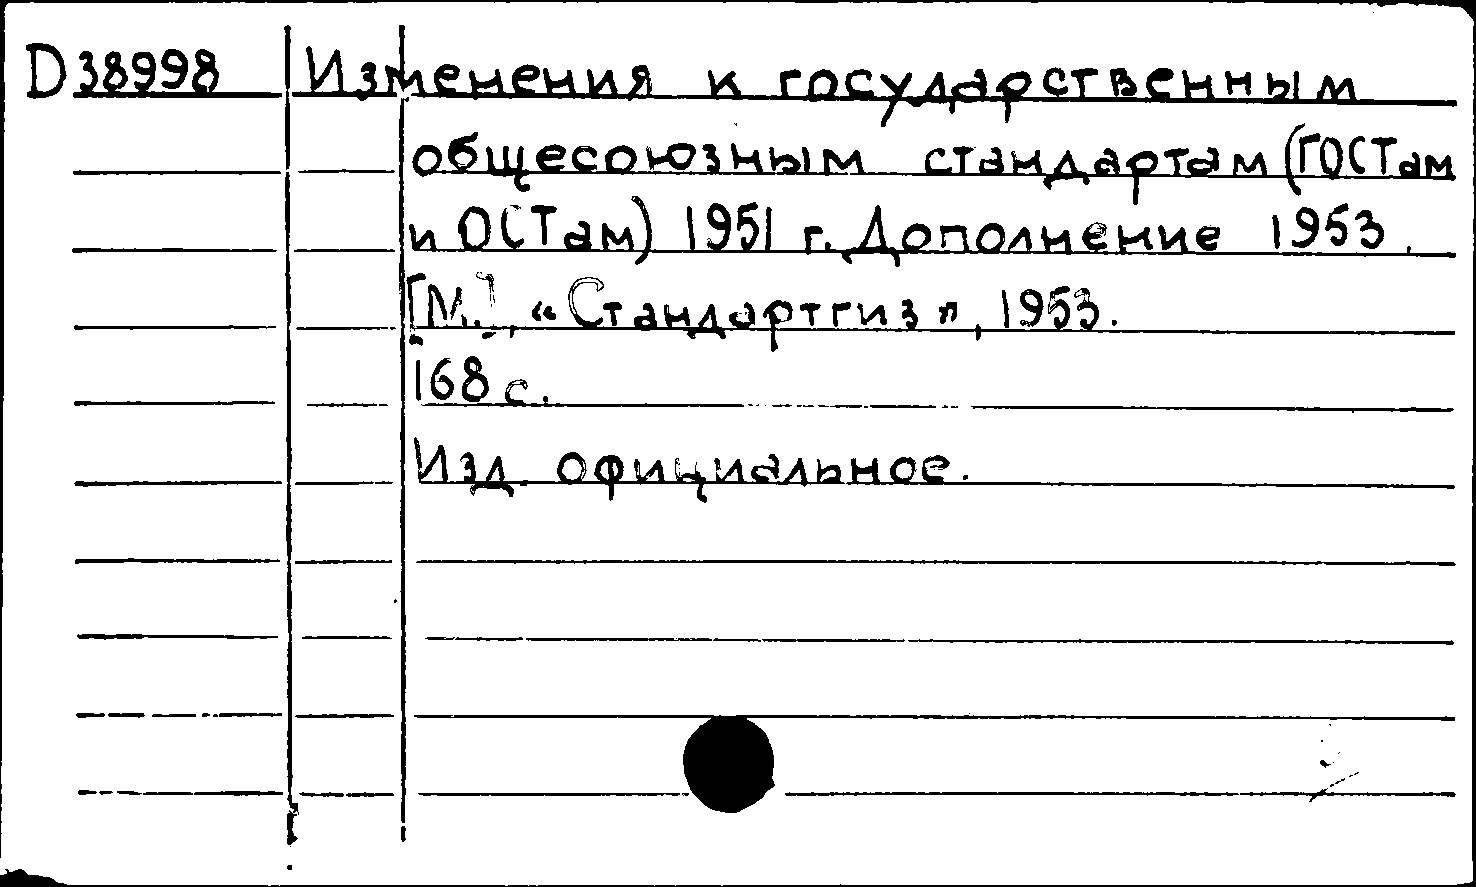 D38998 Изменения к государственным
общесоюзным стандартам (ГОСТам
и ОСТам) 1951 г. Дополнение 1953.
[М.], «Стандартгиз», 1953.
168 с.
Изд. официальное.